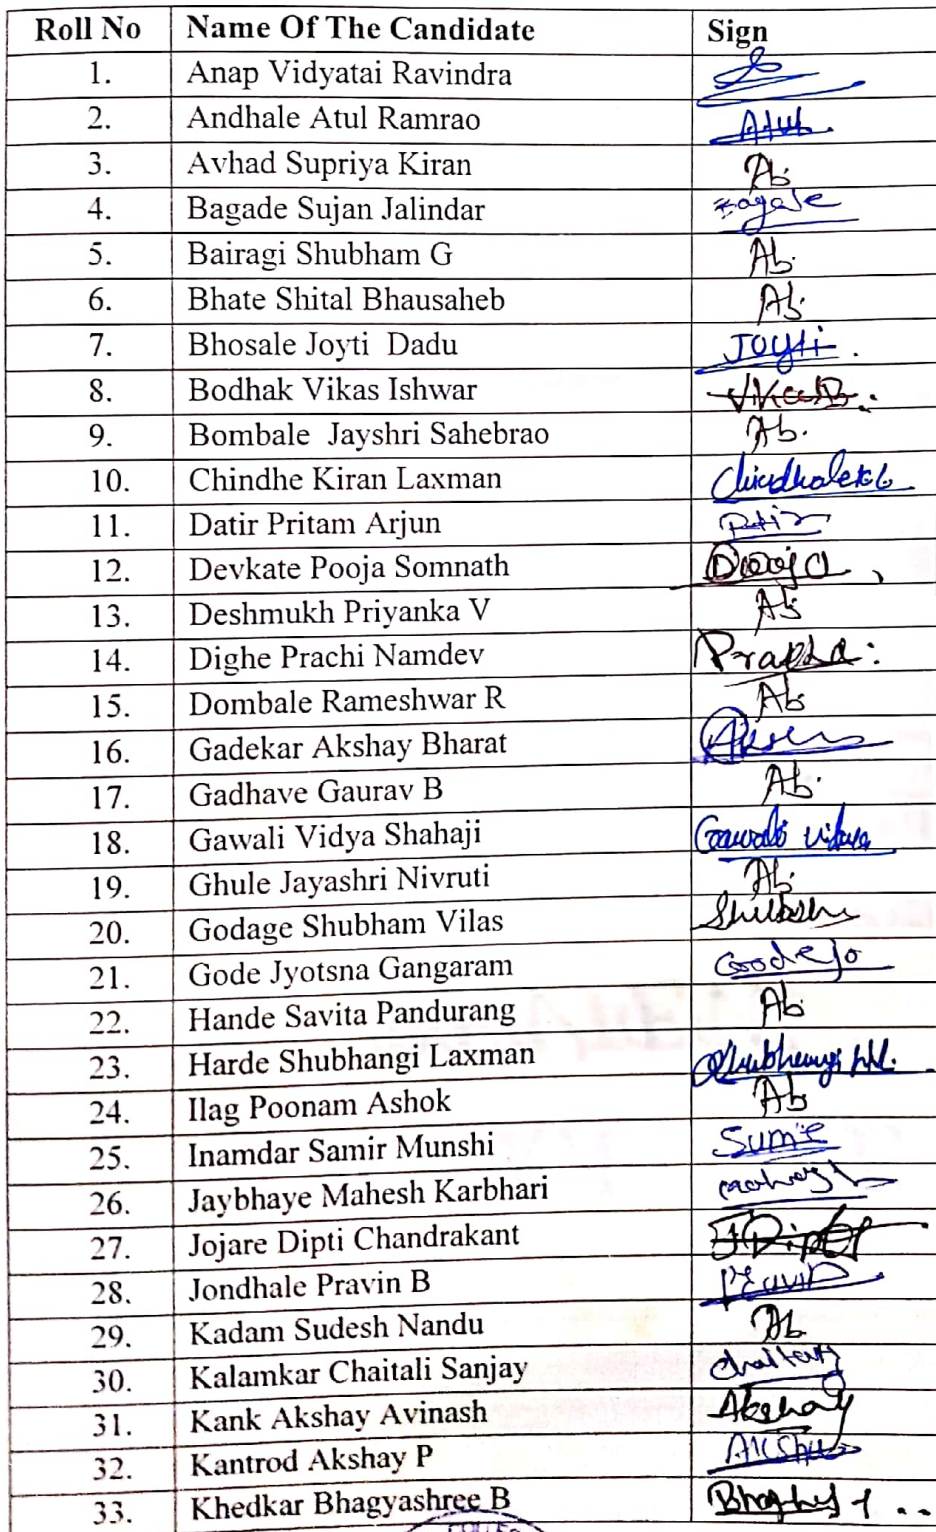 Roll No Name Of The Candidate Sign
1. Anap Vidyatai Ravindra
2. Andhale Atul Ramrao Atul.
3. Avhad Supriya Kiran Ab
4. Bagade Sujan Jalindar
5. Bairagi Shubham G Ab.
6. Bhate Shital Bhausaheb Ab.
7. Bhosale Joyti Dadu Joyti.
8. Bodhak Vikas Ishwar
9. Bombale Jayshri Sahebrao Ab.
10. Chindhe Kiran Laxman
11. Datir Pritam Arjun
12. Devkate Pooja Somnath
13. Deshmukh Priyanka V Ab
14. Dighe Prachi Namdev
15. Dombale Rameshwar R Ab
16. Gadekar Akshay Bharat
17. Gadhave Gaurav B Ab.
18. Gawali Vidya Shahaji Gawali Vidya
19. Ghule Jayashri Nivruti Ab.
20. Godage Shubham Vilas
21. Gode Jyotsna Gangaram
22. Hande Savita Pandurang Ab
23. Harde Shubhangi Laxman
24. Ilag Poonam Ashok Ab
25. Inamdar Samir Munshi
26. Jaybhaye Mahesh Karbhari
27. Jojare Dipti Chandrakant
28. Jondhale Pravin B
29. Kadam Sudesh Nandu Ab
30. Kalamkar Chaitali Sanjay
31. Kank Akshay Avinash Akshay
32. Kantrod Akshay P
33. Khedkar Bhagyashree B